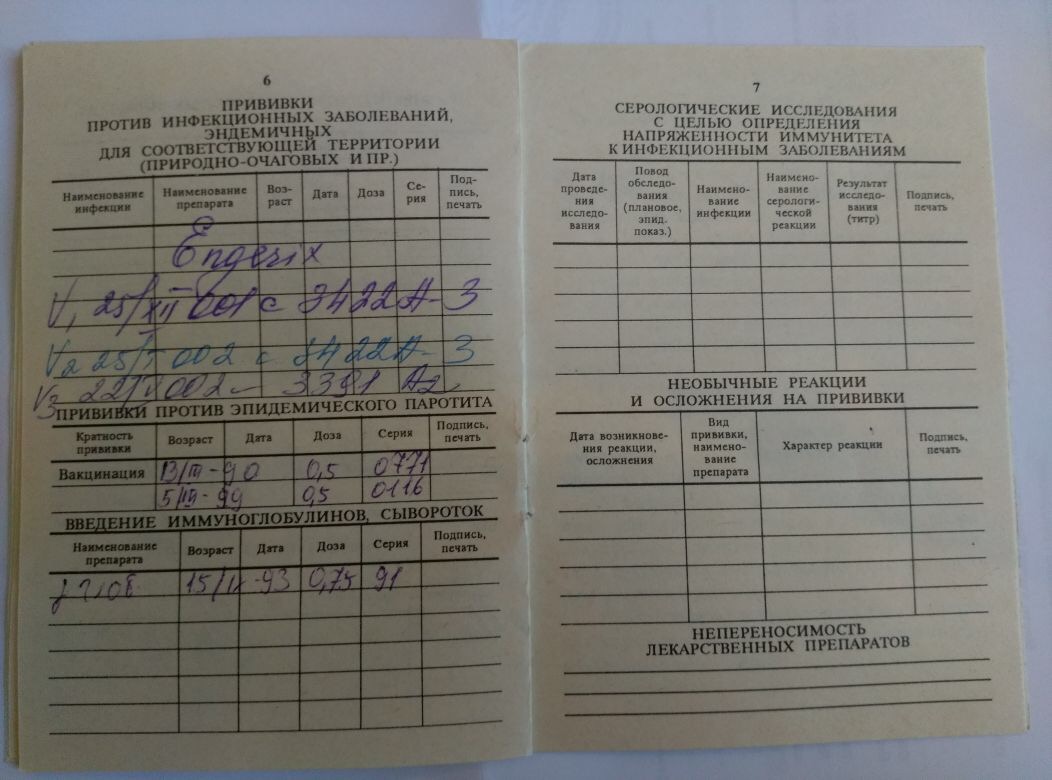 6
ПРИВИВКИ
ПРОТИВ ИНФЕКЦИОННЫХ ЗАБОЛЕВАНИЙ,
ЭНДЕМИЧНЫХ
ДЛЯ СООТВЕТСТВУЮЩЕЙ ТЕРРИТОРИИ
(ПРИРОДНО-ОЧАГОВЫХ И ПР.)
Наименование инфекции Наименование препарата Воз-раст Дата Доза Се-рия Под-пись, печать
Engerix
V1 25/XII 001 с 3422А-3
V2 25/I 002 с 3422А-3
V3 002 3391 А2
ПРИВИВКИ ПРОТИВ ЭПИДЕМИЧЕСКОГО ПАРОТИТА
Кратность прививки Возраст Дата Доза Серия Подпись, печать
Вакцинация 13/III-90 0,5 0771
5/III-99 0,5 0116
ВВЕДЕНИЕ ИММУНОГЛОБУЛИНОВ, СЫВОРОТОК
Наименование препарата Возраст Дата Доза Серия Подпись, печать
15/IX-93 0,75 91
7
СЕРОЛОГИЧЕСКИЕ ИССЛЕДОВАНИЯ
С ЦЕЛЬЮ ОПРЕДЕЛЕНИЯ
НАПРЯЖЕННОСТИ ИММУНИТЕТА
К ИНФЕКЦИОННЫМ ЗАБОЛЕВАНИЯМ
Дата проведе-ния исследо-вания Повод обследо-вания (плановое, эпид. показ.) Наимено-вание инфекции Наимено-вание серологи-ческой реакции Результат исследо-вания (титр) Подпись, печать
НЕОБЫЧНЫЕ РЕАКЦИИ
И ОСЛОЖНЕНИЯ НА ПРИВИВКИ
Дата возникнове-ния реакции, осложнения Вид прививки, наимено-вание препарата Характер реакции Подпись, печать
НЕПЕРЕНОСИМОСТЬ
ЛЕКАРСТВЕННЫХ ПРЕПАРАТОВ